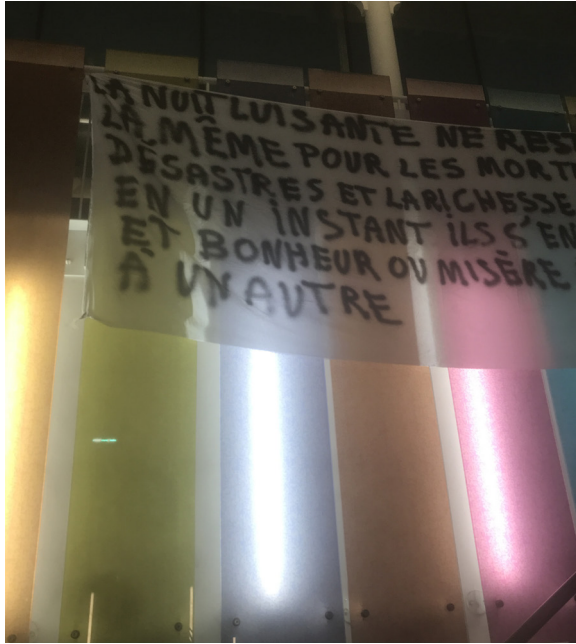 LA NUIT LUISANTE NE RES
LA MÊME POUR LES MORT
DÉSASTRES ET LA RICHESSE
EN UN INSTANT ILS S'EN
ET BONHEUR OU MISÈRE
À UN AUTRE